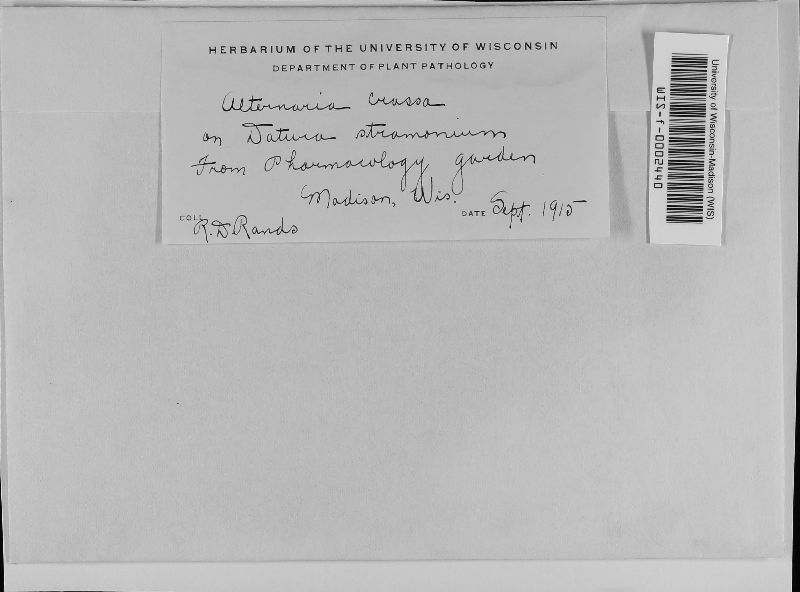 HERBARIUM OF THE UNIVERSITY OF WISCONSIN
DEPARTMENT OF PLANT PATHOLOGY
Alternaria crassa
on Datura stramonium
From Pharmacology garden
Madison, Wis.
DATE Sept. 1915
COLL. R. D. Rands
University of Wisconsin-Madison (WIS)
WIS-f-0002440